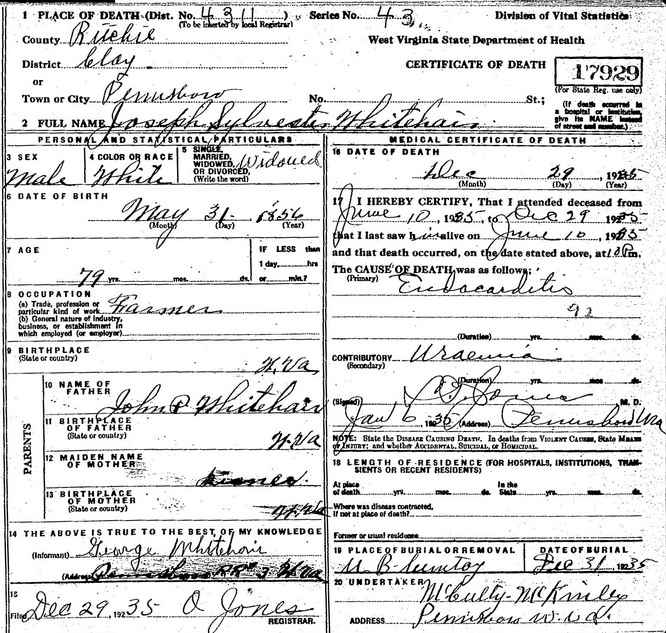 1 PLACE OF DEATH (Dist. No. 4311 Series No. 43 Division of Vital Statistics
(To be inserted by local Registrar)
County Ritchie West Virginia State Department of Health
District Clay CERTIFICATE OF DEATH 17929
or (For State Reg. use only)
Town or City Pennsboro No. St.; (If death occurred in a hospital or institution, give its NAME instead of street and number.)
2 FULL NAME Joseph Sylvester Whitehair
PERSONAL AND STATISTICAL PARTICULARS
3 SEX Male
4 COLOR OR RACE White
5 SINGLE, MARRIED, WIDOWED, OR DIVORCED, (Write the word) Widowed
6 DATE OF BIRTH
May 31 1856
(Month) (Day) (Year)
7 AGE IF LESS than
1 day, hrs
79 yrs. mos. ds. or min.?
8 OCCUPATION
(a) Trade, profession or
particular kind of work Farmer
(b) General nature of industry,
business, or establishment in
which employed (or employer)
9 BIRTHPLACE
(State or country) W.Va
PARENTS
10 NAME OF
FATHER John P Whitehair
11 BIRTHPLACE
OF FATHER
(State or country) W.Va
12 MAIDEN NAME
OF MOTHER
13 BIRTHPLACE
OF MOTHER
(State or country) W.Va
14 THE ABOVE IS TRUE TO THE BEST OF MY KNOWLEDGE
(Informant) George Whitehair
(Address) W.Va
15
Filed Dec 29, 1935 O Jones
REGISTRAR.
MEDICAL CERTIFICATE OF DEATH
16 DATE OF DEATH
Dec 29, 1935
(Month) (Day) (Year)
17 I HEREBY CERTIFY, That I attended deceased from
June 10, 1935, to Dec 29 1935
that I last saw him alive on June 10, 1935
and that death occurred, on the date stated above, at 10 P m.
The CAUSE OF DEATH was as follows:
(Primary) Endocarditis
92
(Duration) yrs. mos. ds.
CONTRIBUTORY Uraemia
(Secondary)
(Duration) yrs. mos. ds.
(Signed) Jones M. D.
Jan 6, 1935 (Address) Pennsboro W.Va
NOTE: State the DISEASE CAUSING DEATH. In deaths from VIOLENT CAUSES, State MEANS
OF INJURY; and whether ACCIDENTAL, SUICIDAL, or HOMICIDAL.
18 LENGTH OF RESIDENCE (FOR HOSPITALS, INSTITUTIONS, TRAN-
SIENTS OR RECENT RESIDENTS)
At place In the
of death yrs. mos. ds. State yrs. mos. ds.
Where was disease contracted,
if not at place of death?
Former or usual residence
19 PLACE OF BURIAL OR REMOVAL DATE OF BURIAL
Dec 31, 1935
20 UNDERTAKER McCulty-McKinley
ADDRESS Pennsboro W.Va.